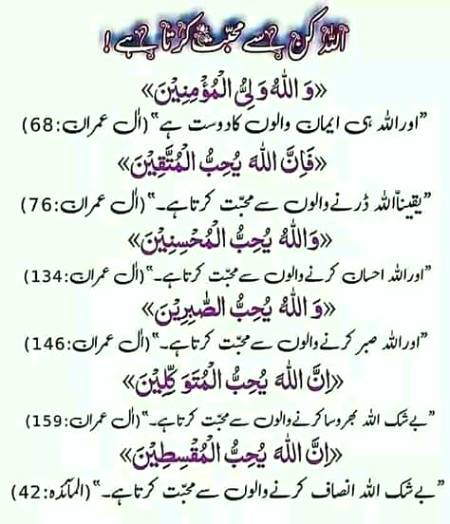 اللہ کن سے محبت کرتا ہے!
«وَاللهُ وَلِیُّ الْمُؤْمِنِیْنَ»
”اور اللہ ہی ایمان والوں کا دوست ہے“ (اٰل عمران:68)
«فَاِنَّ اللهَ یُحِبُّ الْمُتَّقِیْنَ»
”یقیناً اللہ ڈرنے والوں سے محبّت کرتا ہے۔“ (اٰل عمران:76)
«وَاللهُ یُحِبُّ الْمُحْسِنِیْنَ»
”اور اللہ احسان کرنے والوں سے محبّت کرتا ہے۔“ (اٰل عمران:134)
«وَاللهُ یُحِبُّ الصّٰبِرِیْنَ»
”اور اللہ صبر کرنے والوں سے محبّت کرتا ہے۔“ (اٰل عمران:146)
«اِنَّ اللهَ یُحِبُّ الْمُتَوَکِّلِیْنَ»
”بے شک اللہ بھروسا کرنے والوں سے محبّت کرتا ہے۔“ (اٰل عمران:159)
«اِنَّ اللهَ یُحِبُّ الْمُقْسِطِیْنَ»
”بے شک اللہ انصاف کرنے والوں سے محبّت کرتا ہے۔“ (المآئدہ:42)